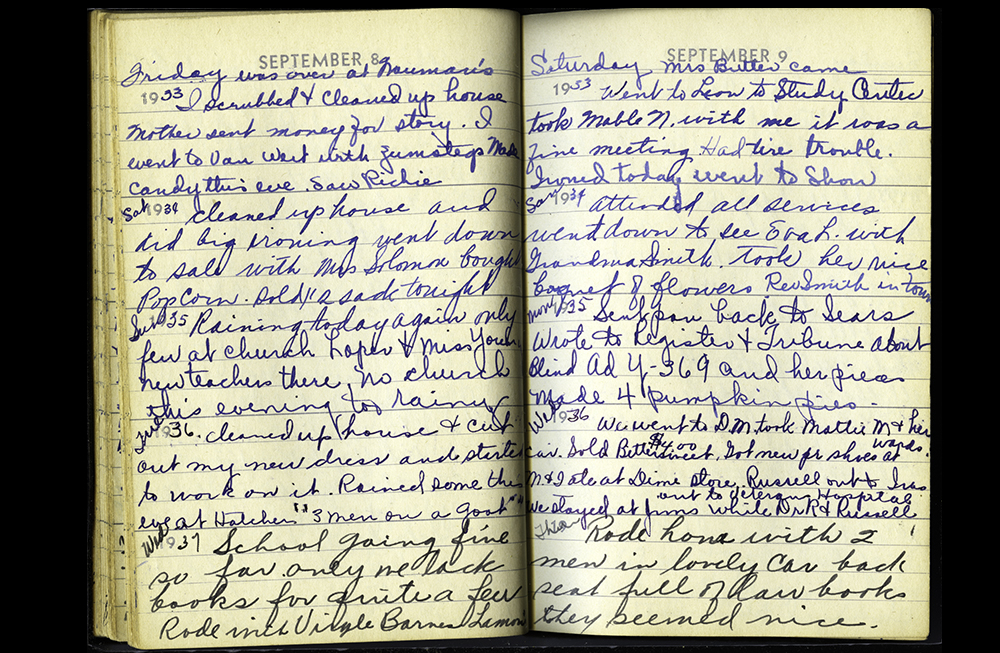 SEPTEMBER 8
Friday was over at Nauman's
1933 I scrubbed & cleaned up house
mother sent money for story. I
went to Van Wert with Zumstegs Made
candy this eve. Saw Richie
Sat 1934 cleaned up house and
did big ironing went down
to sale with Mrs Solomon bought
Pop Corn. Sold 1/2 sack tonight
Sun 1935 Raining today again only
few at church Loper & Miss Youn
new teachers there, no church
this evening too rainy
Tues 1936. cleaned up house & cut
out my new dress and started
to work on it. Rained some this
eve at Hatchers "3 men on a
Wed 1937 School going fine
so far only we lack
books for quite a few
Rode with Virgle Barnes Lamoni
SEPTEMBER 9
Saturday Mrs Butter came
1933 Went to Leon to Study Center
took Mable N. with me it was a
fine meeting Had tire trouble.
Ironed today went to Show
Sun 1934 Attended all services
went down to see Eva L. with
Grandma Smith. took her nice
boquet of flowers Rev Smith in town
Mon 1935 Sent pan back to Sears
Wrote to Register & Tribune about
Blind Ad Y-369 and her pieces
Made 4 pumpkin pies -
Wed 1936 We went to D.M. took Mattie M & her
car. Sold Bittersweet. $4.00 Got new pr shoes at Wards.
N. & I ate at Dime store. Russell out to Iras
out to veterans Hospital
We stayed at while Dr R & Russell
Thur Rode home with 2
men in lovely car back
seat full of law books
they seemed nice.